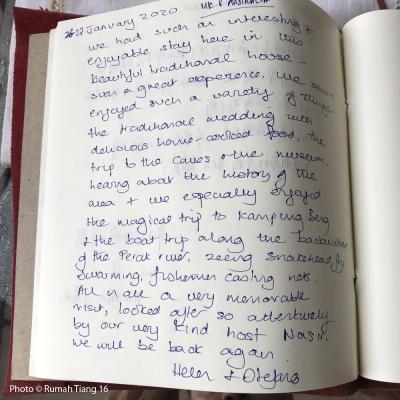 26-27 January 2020 UK & AUSTRALIA
we had such an interesting &
enjoyable stay here in this
beautiful traditional house -
such a great experience. We
enjoyed such a variety of things -
the traditional wedding with
delicious home-cooked food, the
trip to the caves & the museum,
hearing about the history of the
area & we especially enjoyed
the magical trip to Kampung Beng
& the boat trip along the backwater
of the Perak river, seeing snakehead fry
swarming, fishermen casting nets.
All in all a very memorable
visit, looked after so attentively
by our very kind host Nasir.
We will be back again.
Helen &
Photo © Rumah Tiang 16